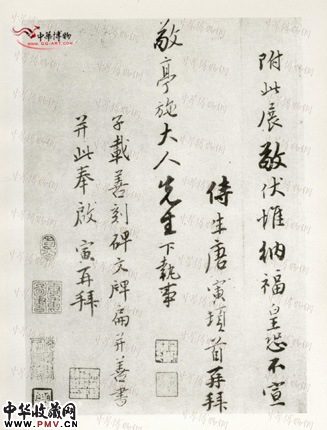 附此展敬伏惟纳福皇恐不宣
侍生唐寅頓首再拜
敬亭施大人先生下執事
子載善刻碑文牌扁并善書
并此奉啟 寅再拜
中华博物
www.gg-art.com
中华收藏网
www.PMV.CN